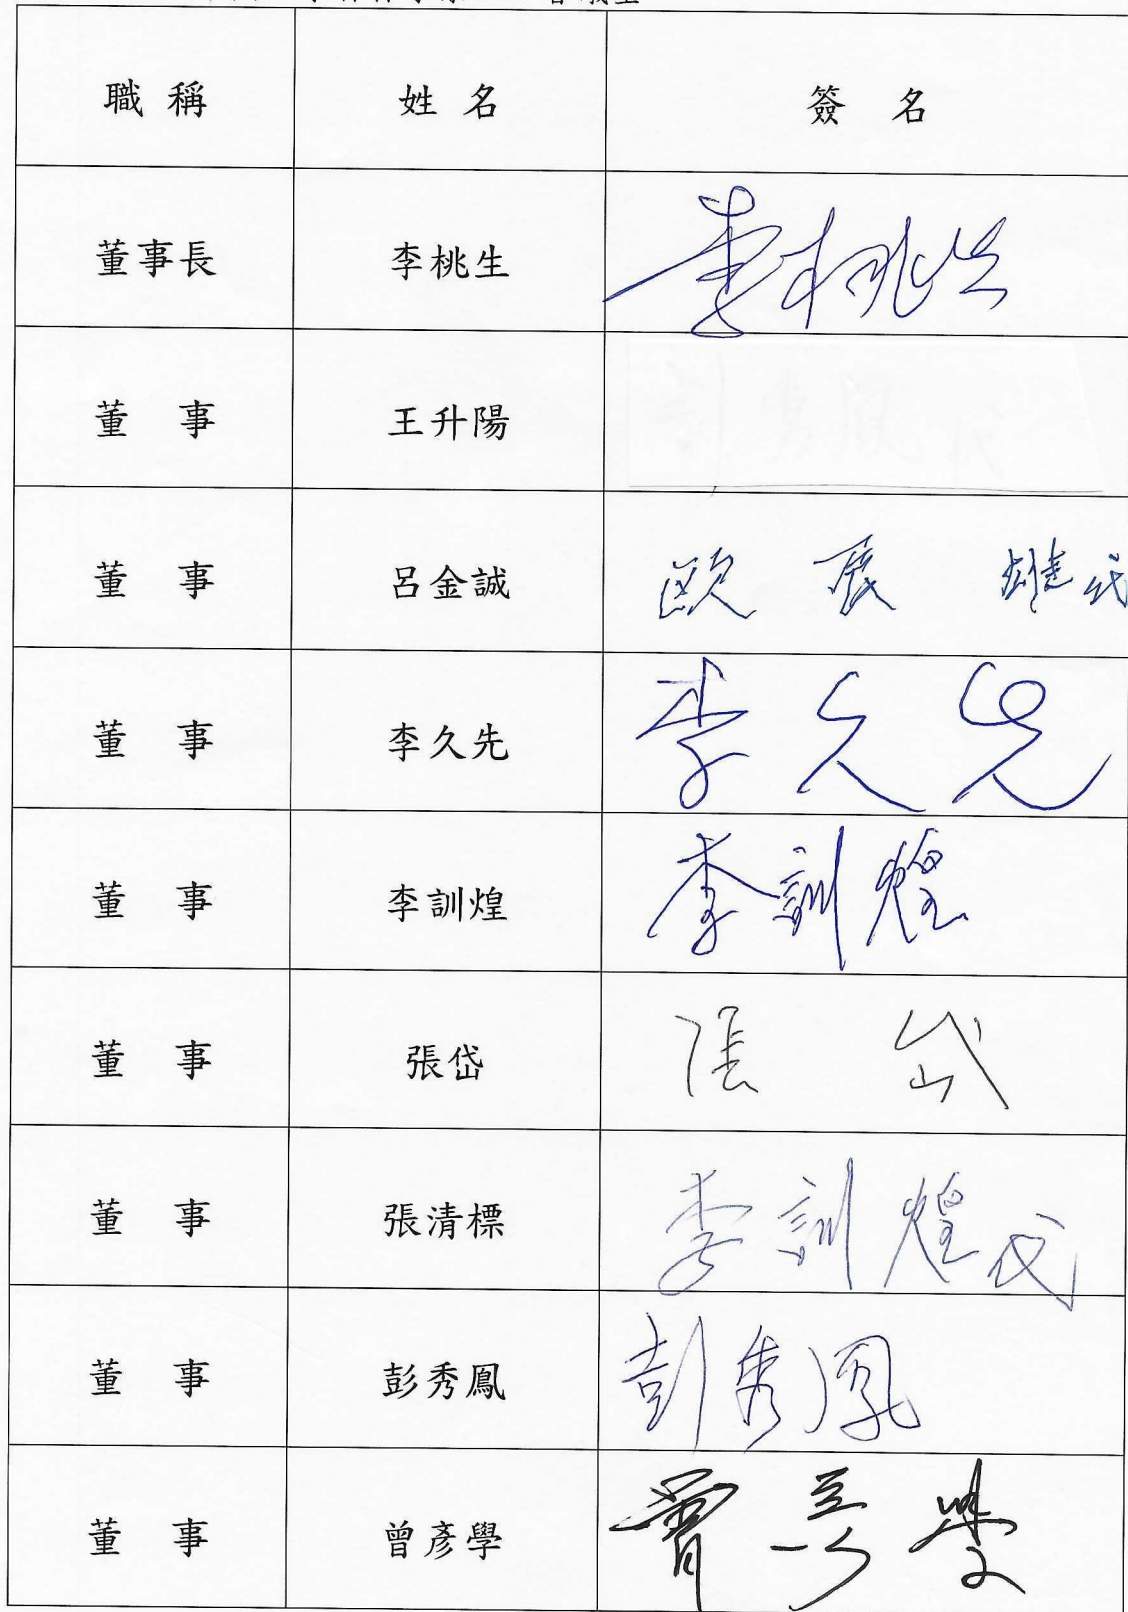 職稱 姓名 簽名
董事長 李桃生 李桃生
董事 王升陽
董事 呂金誠 歐辰雄代
董事 李久先 李久先
董事 李訓煌 李訓煌
董事 張岱 張岱
董事 張清標 李訓煌代
董事 彭秀鳳 彭秀鳳
董事 曾彥學 曾彥學